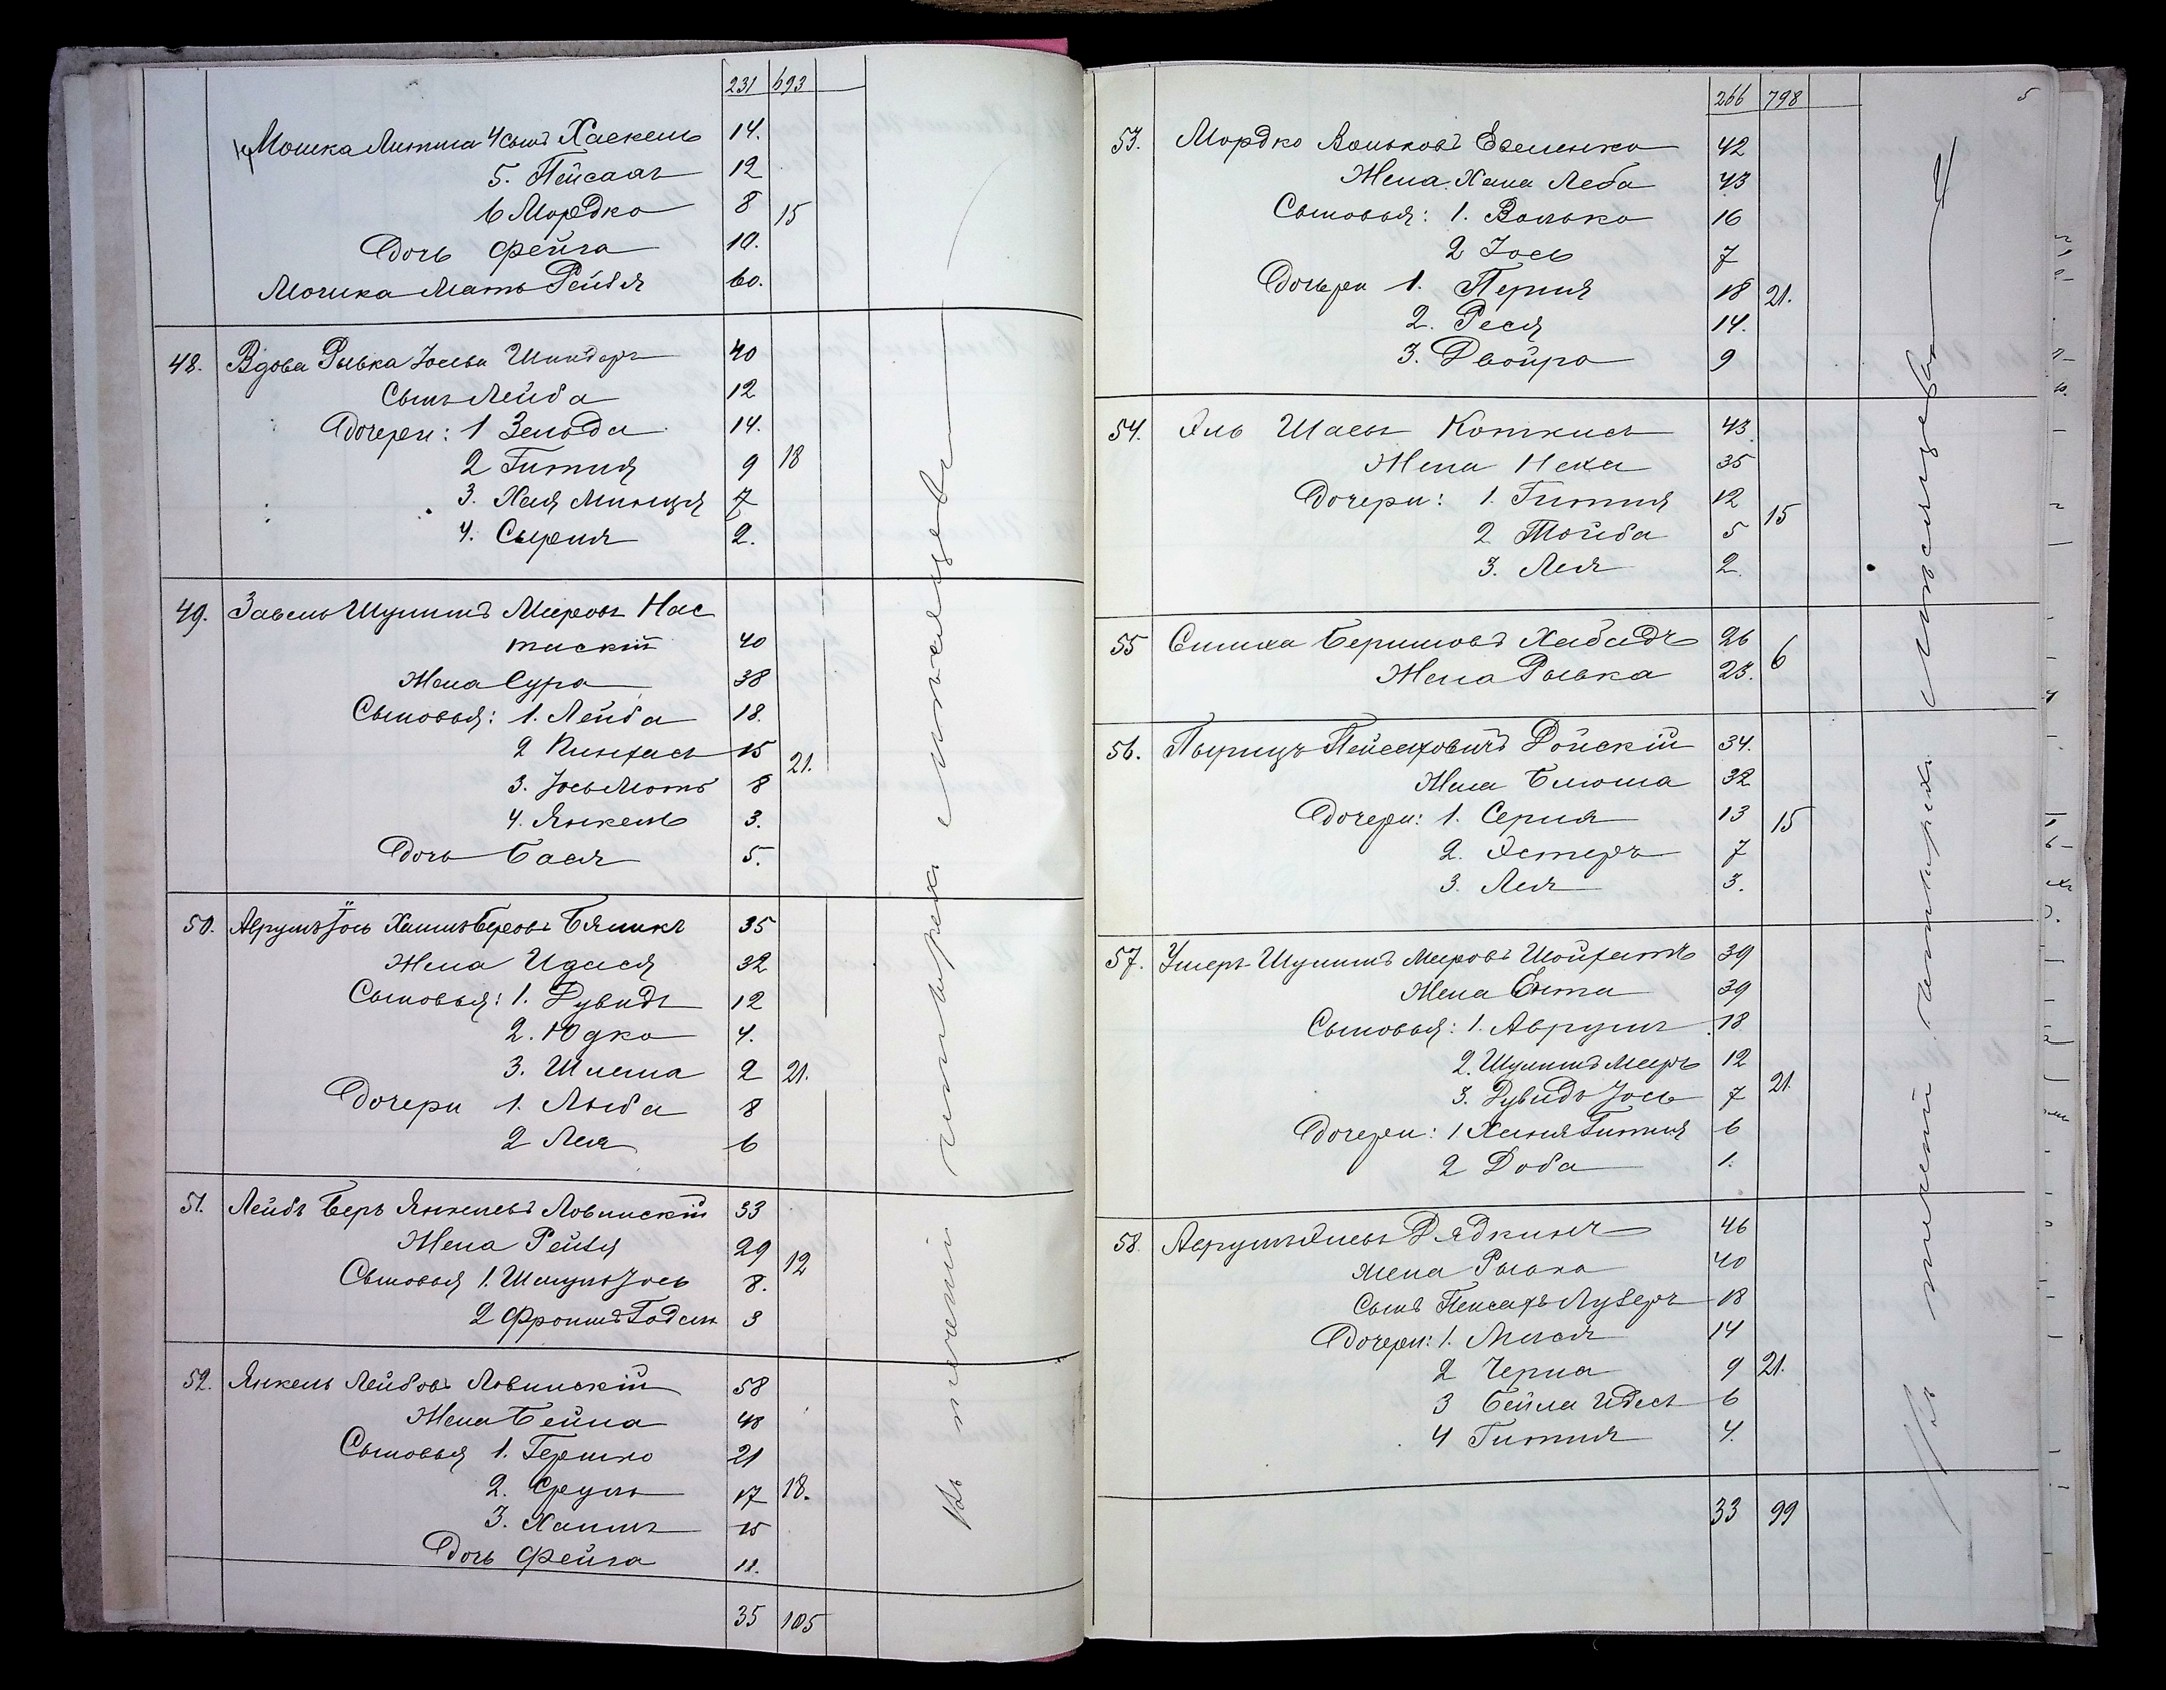 231 693
Мошка Литта 4 сынъ Хаскель 14.
5. Пейсахъ 12
6 Мордко 8 15
Дочь Фейга 10.
Мошка Мать Рейзя 60.
48. Вдова Рывка Іосева Шиндеръ 40
Сынъ Лейба 12
Дочери: 1 Зельда 14.
2 Гитля 9 18
3. Хая Миндля 7
4. Сыреля 2.
49. Завель Шулимъ Мееровъ Нас
таскій 40
Жена Сура 38
Сыновья: 1. Лейба 18.
2 Пинхасъ 15 21.
3. Іось Мотъ 8
4. Янкель 3.
Дочь Бася 5.
50. Аврумъ Іось Хаимъ Беровъ Бяликъ 35
Жена Идася 32
Сыновья: 1. Дувидъ 12
2. Юдко 4.
3. Шлема 2 21.
Дочери 1. Лыба 8
2 Лея 6
51. Лейбъ Беръ Янкелевъ Ловинскій 33
Жена Рейзя 29 12
Сыновья 1. Шмуль Іось 8.
2 Фроимъ Годаль 3
52. Янкель Лейбовъ Ловинскій 58
Жена Бейла 48
Сыновья 1. Гершко 21
2. Сруль 17 18.
3. Хаимъ 15
Дочь Фейга 11.
35 105
Въ теченіи четырехъ мѣсяцевъ
266 798 5
53. Мордко Вольковъ Евеленко 42
Жена Хана Леба 43
Сыновья: 1. Волько 16
2 Іось 7
Дочери 1. Перля 18 21.
2. Рася 14.
3. Двойра 9
54. Эль Шаевъ Коткисъ 43.
Жена Неха 35
Дочери: 1. Гитля 12 15
2 Тойба 5
3. Лея 2.
55 Симха Беришовъ Хабадъ 26 6
Жена Рывка 23.
56. Пырицъ Пейсаховичъ Донскій 34.
Жена Блюма 32
Дочери: 1. Серля 13 15
2. Эстеръ 7
3. Лея 3.
57. Ушеръ Шулимъ Мееровъ Шойхатъ 39
Жена Ента 39
Сыновья: 1. Аврумъ 18
2. Шулимъ Мееръ 12
3. Дувидъ Іось 7 21.
Дочери: 1. Ханя Гитля 6
2 Доба 1.
58. Аврумъ Элевъ Дядкинъ 46
Жена Рывка 40
Сынъ Пейсахъ Лузеръ 18
Дочери: 1. Лыся 14
2 Черна 9 21.
3 Бейла Идесъ 6
4 Гитля 4.
33 99
Въ теченіи четырехъ мѣсяцевъ